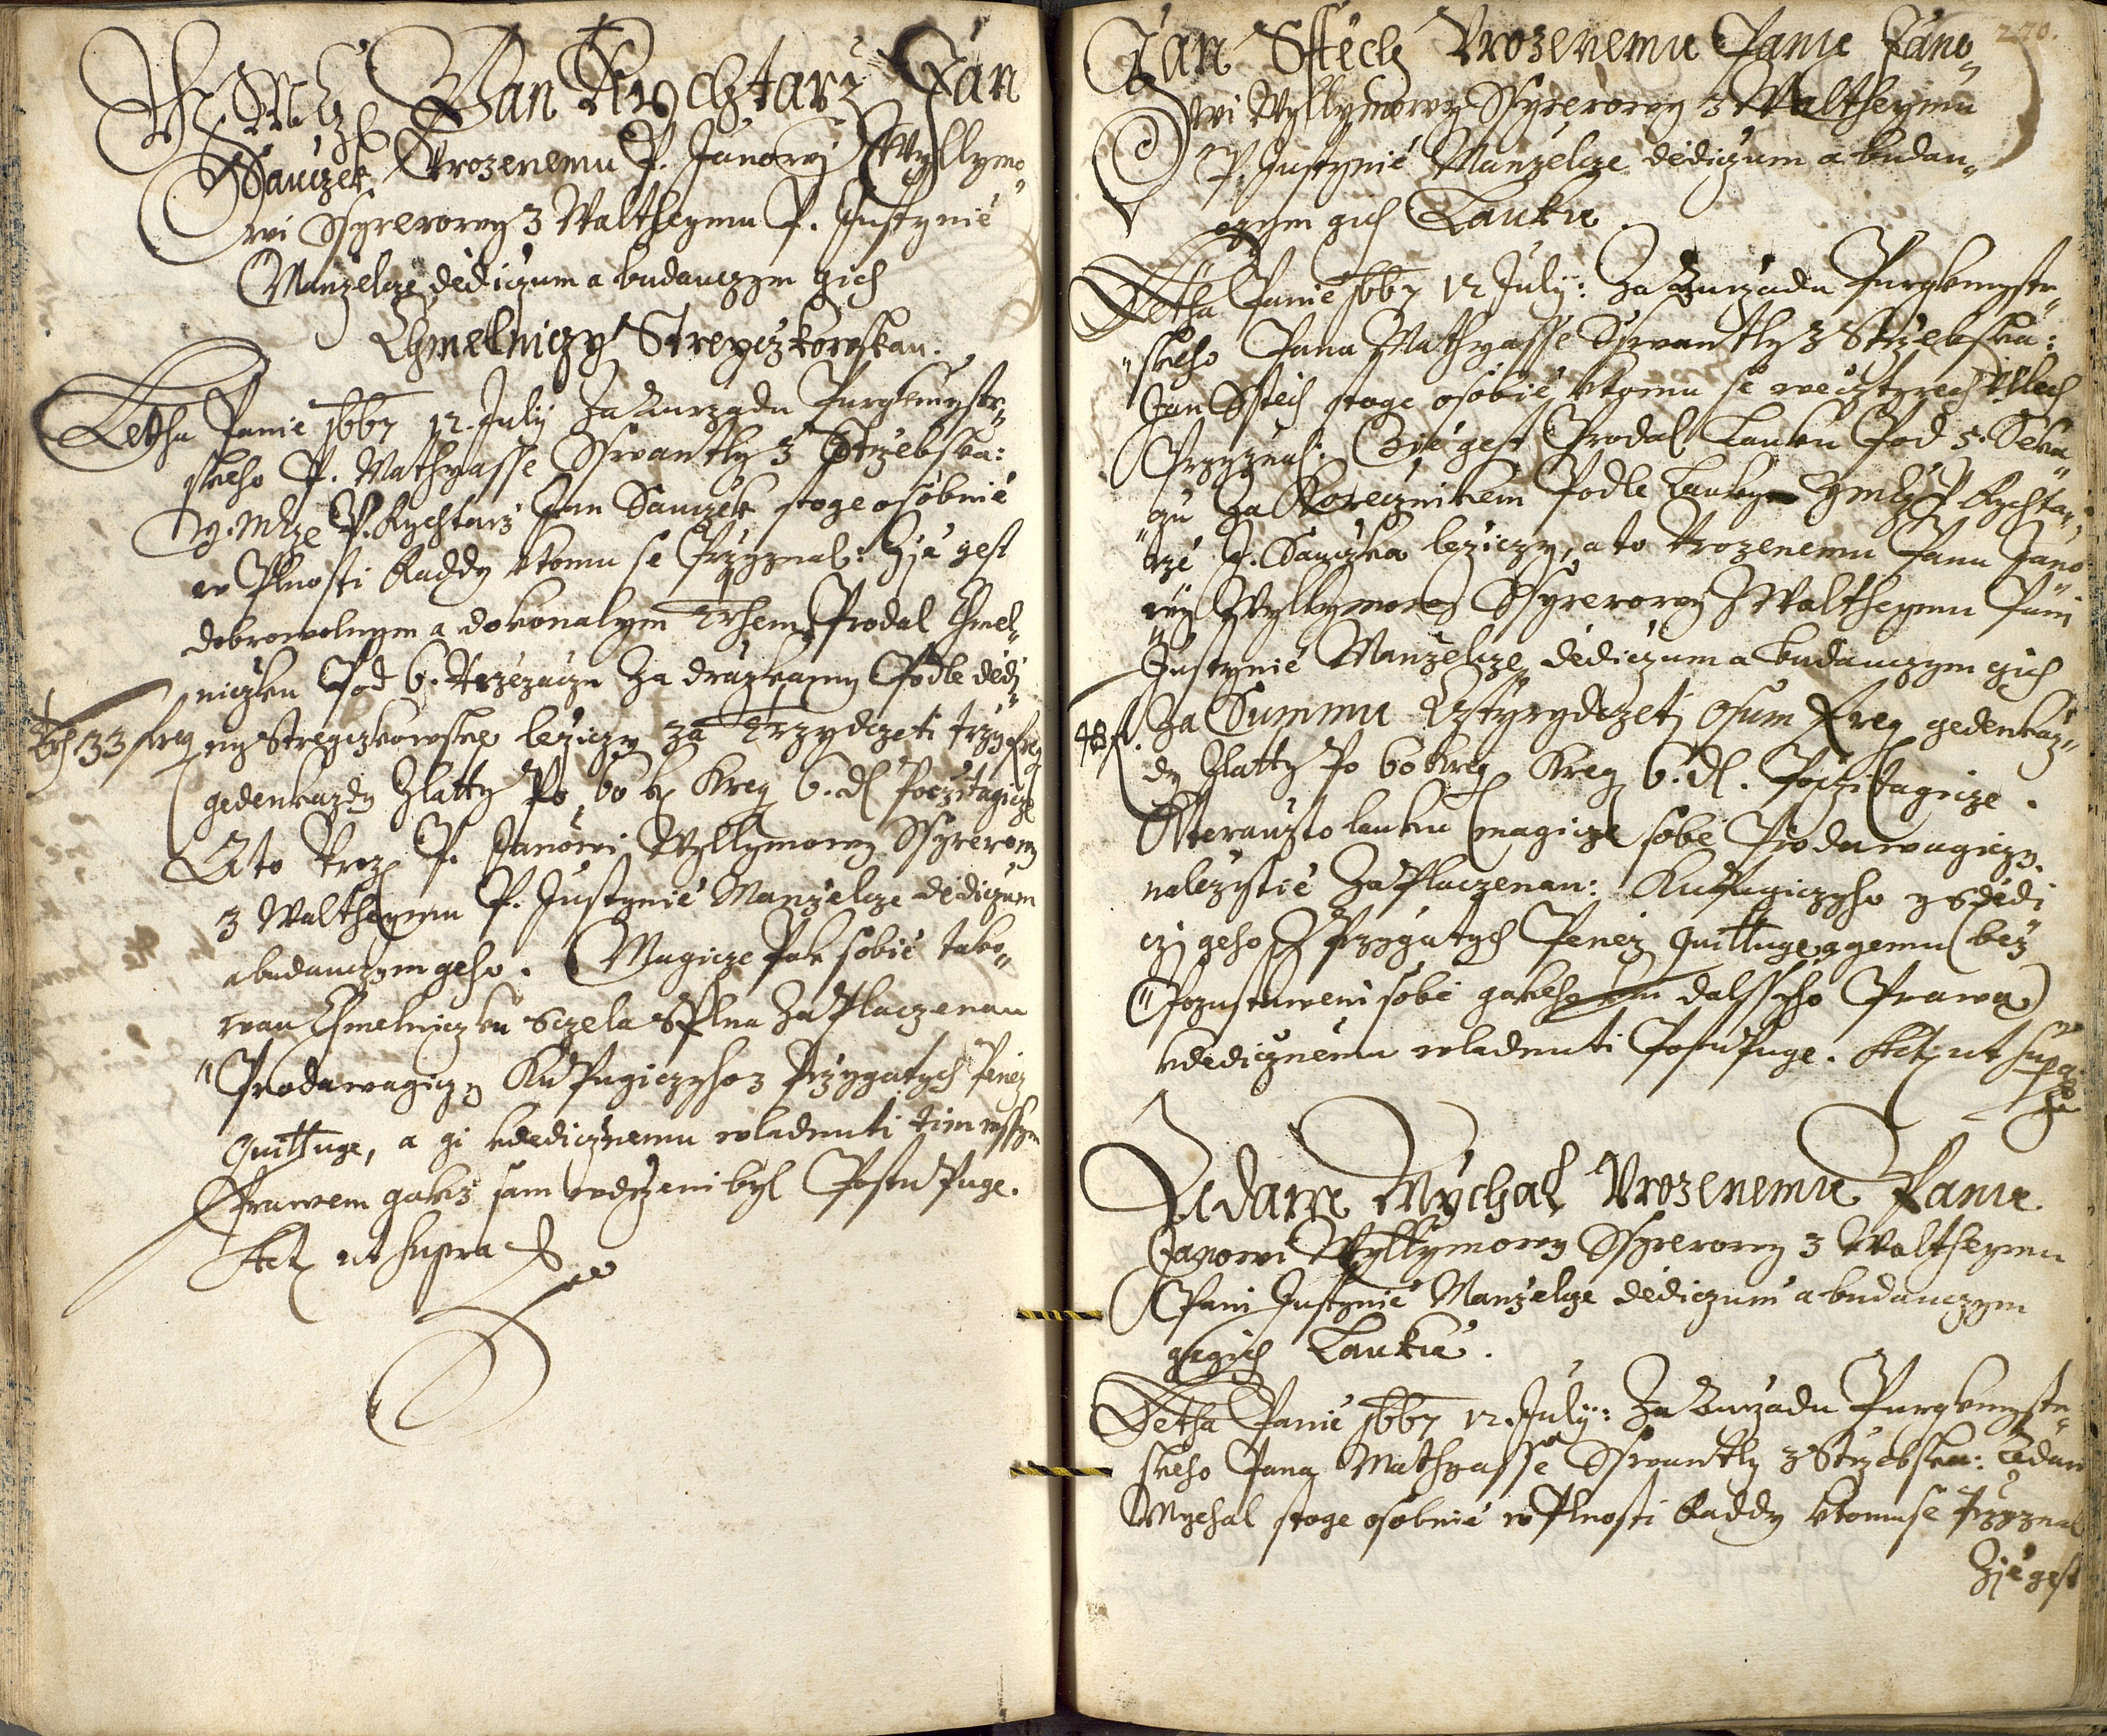 Pan Rychtarz Jan
Sauczek Vrozenemu P. Janowj Wyllymo„
wi Ssyrerowy z Waltheymu P. Justynie
Manzelcze dediczum a budauczym gich
Chmelniczy Streyczkowskau.
Letha Panie 1667 12. July Za Aurzadu Purgkmystr„
skeho P. Mathyasse Sswantly z Strzebska:
G. Mcze P. Rychtarz Jan Sauczek stoge osobnie
w Plnosti Raddy ktomu se Przyznal: Zie gest
dobrowolnym a dokonalym Trhem Prodal Chmel„
niczku Pod 6. Za drazkamy Podle dedi„
ny Streyczkowske leziczy za Trzydczeti trzy frey
gedenkazdy Zlatty Po 60 k Krey 6. d Poczitagicze
A to Vroz P. Janowi Wyllymowy Ssyrerowy
z Waltheymu P. Justynie Manzelcze dediczum
abudauczym geho. Magicze Pak sobie tako„
wau Chmelniczku Sczela Splna Za Placzenau
Prodawagiczy Kupugiczyho z Przygatych Penez
Quittuge, a gi kdedicznemu wladnuti tim wssym
Prawem gakz sam wdrzeni byl Postupuge.
Act ut supra
33 frey
270.
Jan Sstech Vrozenemu Panu Jano„
wi Wyllymowy Ssyrerowy z Waltheymu
P. Justynie Manzelcze dediczum a budau„
czym gich Lauku
Letha Panie 1667 12 July: Za Aurzadu Purgkmystr„
skeho Pana Mathyasse Sswantly z Strzebska:
Jan Sstech stoge osobie ktomu se weczty­rech
Przyznal: Zie gest Prodal Lauku Pod 5. Seka„
czu Za Korecznikem Podle Lauky Rychta„
rze J. Sauczka leziczy, a to Vrozenemu Panu Jano
wy Wyllymowy Ssyrerowy z Waltheymu Pani
Justynie Manzelcze dediczum a budauczym gich
Za Summu Cztyrydczeti Osum Frey gedenkaz„
dy Zlatty Po 60 krey Krey 6. d. Poczitagicze.
48 f.
Kterauzto lauku magicze sobe Prodawagiczy
nalezytie Za Placzenau: Kupugiczyho y Sdedi
czi geho z Przygatych Penez Quittuge, a gemu bez
Pozustaweni sobe gakeho dalssyho Prawa
kdedicznemu wladnuti Postupuge. Act ut supra
Adam Mychal Vrozenemu Panu
Janowi Wyllymowy Ssyrerowy z Waltheymu
Pani Justynie Manzelcze dediczum a budauczym
gegich Lauku.
Letha Panie 1667 12. July: Za Aurzadu Purgkmystr„
skeho Pana Mathyasse Sswantly z Strzebska: Adam
Mychal stoge osobnie w Plnosti Raddy ktomu se Przyznal
Zie gest